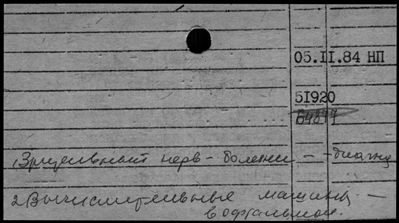 05.II.84 НП
5I920
1) Зрительный нерв - болезни - - диагн
2. Вычислительные машины -
в офтальмол.